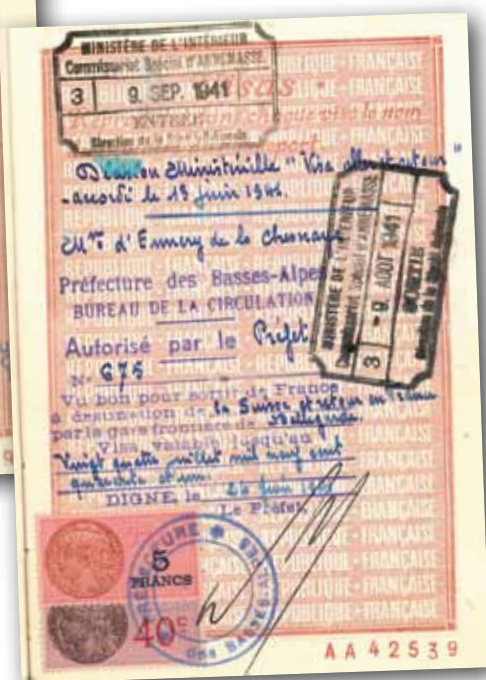 MINISTÈRE DE L'INTÉRIEUR
Commissariat Spécial d'ANNEMASSE
3 9. SEP. 1941
ENTRÉE
Direction de la
Visas
chaque visa le nom
Ministérielle "Visa aller et retour"
accordé le 19 juin 1941.
Mr d'Ennery de la Chesnaye
Préfecture des Basses-Alpes
BUREAU DE LA CIRCULATION
Autorisé par le Préfet
N° 675
Vu bon pour sortir de France
à destination de la Suisse et retour en France
par la gare frontière de Bellegarde
Visa, valable jusqu'au
Vingt quatre juillet mil neuf cent
quarante et un.
DIGNE, le 24 juin
Le Préfet,
MINISTÈRE DE L'INTÉRIEUR
Commissariat Spécial d'ANNEMASSE
3 -9 AOUT 1941
SORTIE
Direction de la
5
FRANCS
40c
PREFECTURE
des BASSES-ALPES
AA 42539